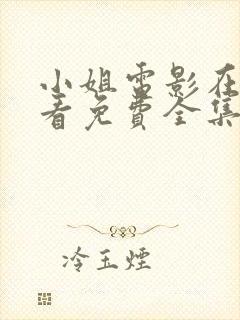 小姐电影在
看免費全集
冷玉煙